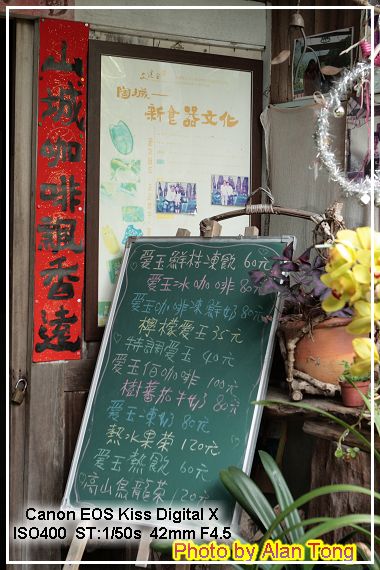 山城咖啡飄香遠
陶城
新食器文化
愛玉鮮桔凍飲 60元
愛玉冰咖啡 80元
愛玉咖啡凍鮮奶 80元
檸檬愛玉 35元
特調愛玉 40元
愛玉伯咖啡 100元
樹蕃茄干奶 80元
愛玉凍奶 80元
熱水果茶 120元
愛玉熱飲 60元
高山烏龍茶 120元
Canon EOS Kiss Digital X
ISO400 ST:1/50s 42mm F4.5
Photo by Alan Tong